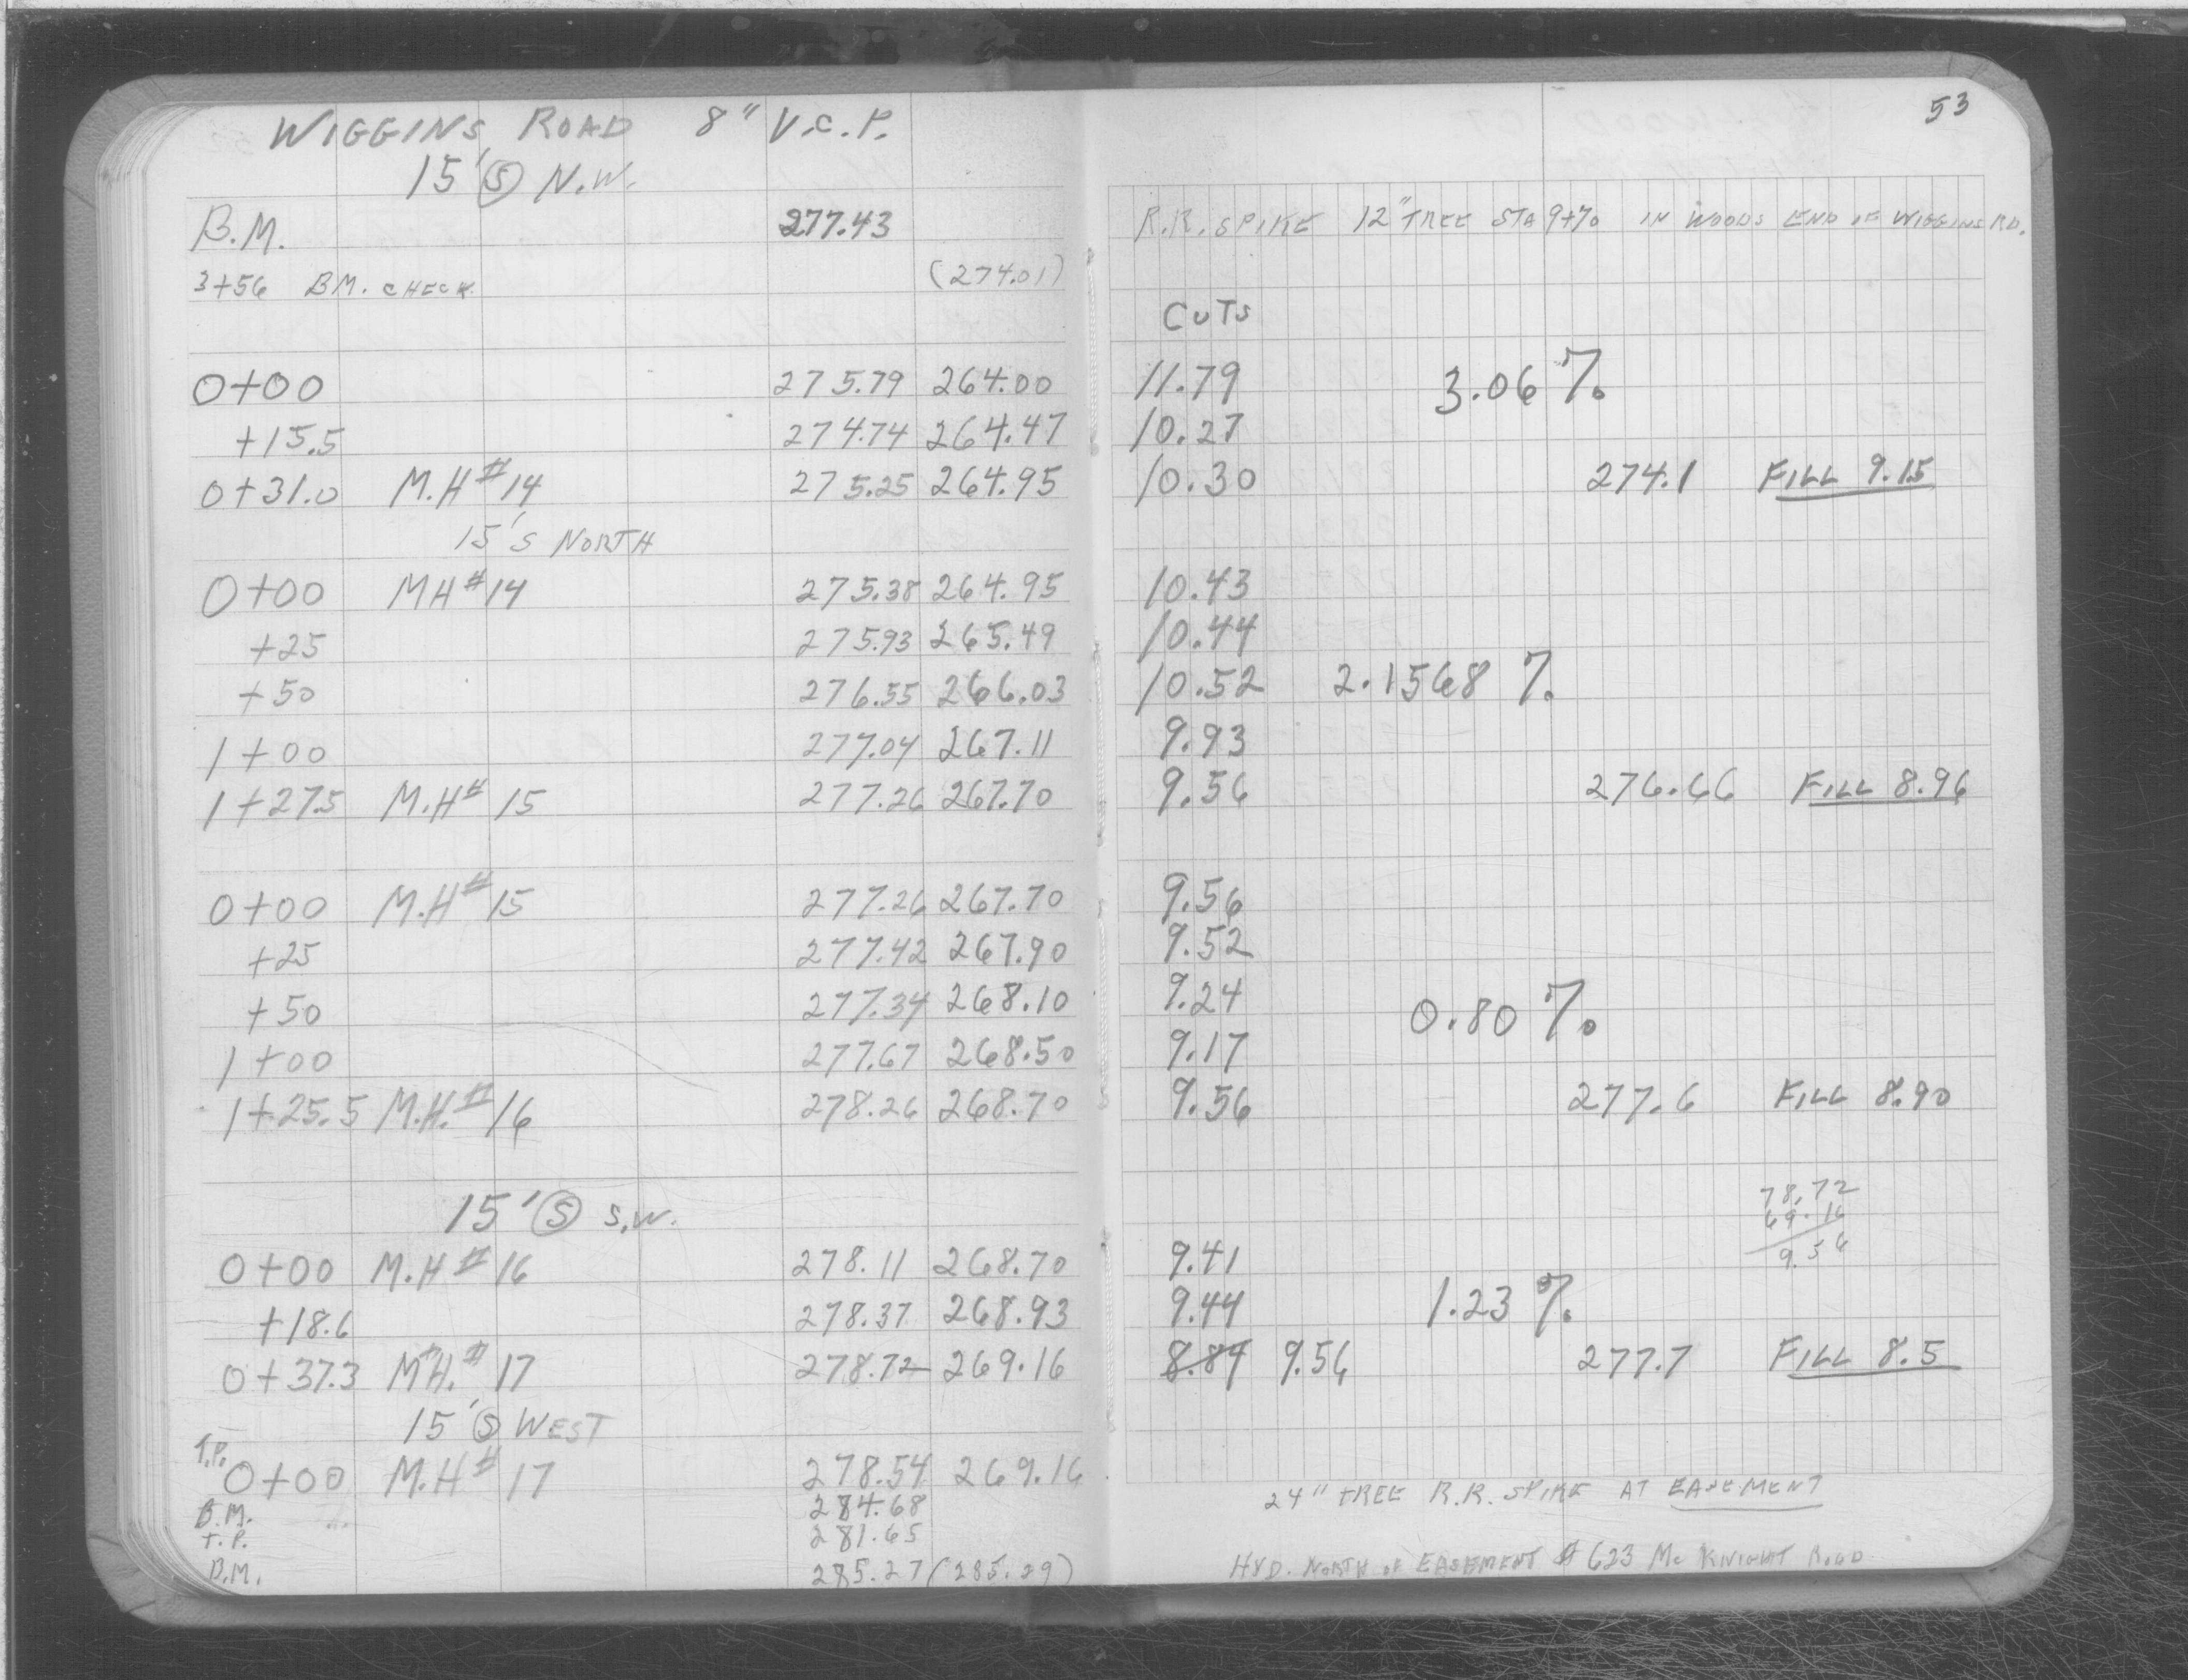 53
WIGGINS ROAD 8" V.C.P.
15' S N.W.
B.M. 277.43 R.R. SPIKE 12" TREE STA 9+70 IN WOODS END OF WIGGINS RD.
3+56 BM. CHECK (274.01)
CUTS
0+00 275.79 264.00 11.79 3.06 %
+15.5 274.74 264.47 10.27
0+31.0 M.H # 14 275.25 264.95 10.30 274.1 FILL 9.15
15' S NORTH
0+00 MH # 14 275.38 264.95 10.43
+25 275.93 265.49 10.44
+50 276.55 266.03 10.52 2.1568 %
1+00 277.04 267.11 9.93
1+27.5 M.H # 15 277.26 267.70 9.56 276.66 FILL 8.96
0+00 M.H # 15 277.26 267.70 9.56
+25 277.42 267.90 9.52
+50 277.34 268.10 9.24 0.80 %
1+00 277.67 268.50 9.17
1+25.5 M.H. # 16 278.26 268.70 9.56 277.6 FILL 8.90
78.72
69.16
9.56
15' S S.W.
0+00 M.H # 16 278.11 268.70 9.41
+18.6 278.37 268.93 9.44 1.23 %
0+37.3 M.H. # 17 278.72 269.16 8.84 9.56 277.7 FILL 8.5
15' S WEST
T.P.
0+00 M.H # 17 278.54 269.16
B.M. 284.68 24" TREE R.R. SPIKE AT EASEMENT
T.P. 281.65
B.M. 285.27 (285.29) HYD. NORTH OF EASEMENT # 623 Mc KNIGHT ROAD